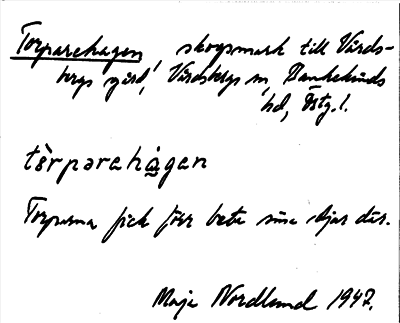 Torparehagen, skogsmark till Vårds-
bergs gård, Vårdsbergs sn, Hanekinds
hd, Östg. l.
tòrparehågen
Torparna fick förr beta sina djur där.
Maja Nordlund 1947.